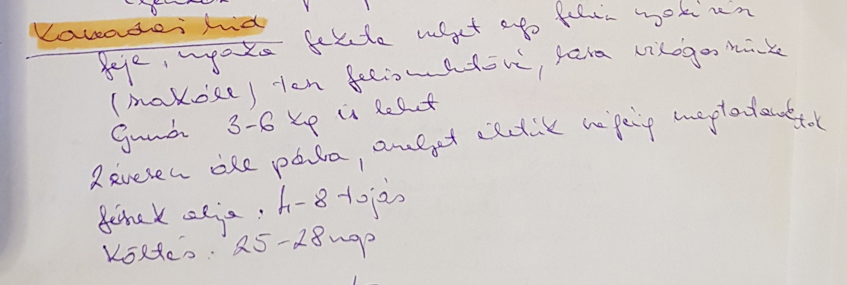 Kanadai lúd
feje, nyaka fekete melyet egy fehér nyaki rész
(szakáll) tesz felismerhetővé, hasa világosszürke
Gunár 3-6 kg is lehet
2 évesen áll párba, amelyet életük végéig megtartanak
fészek alja: 4-8 tojás
Költés: 25-28 nap